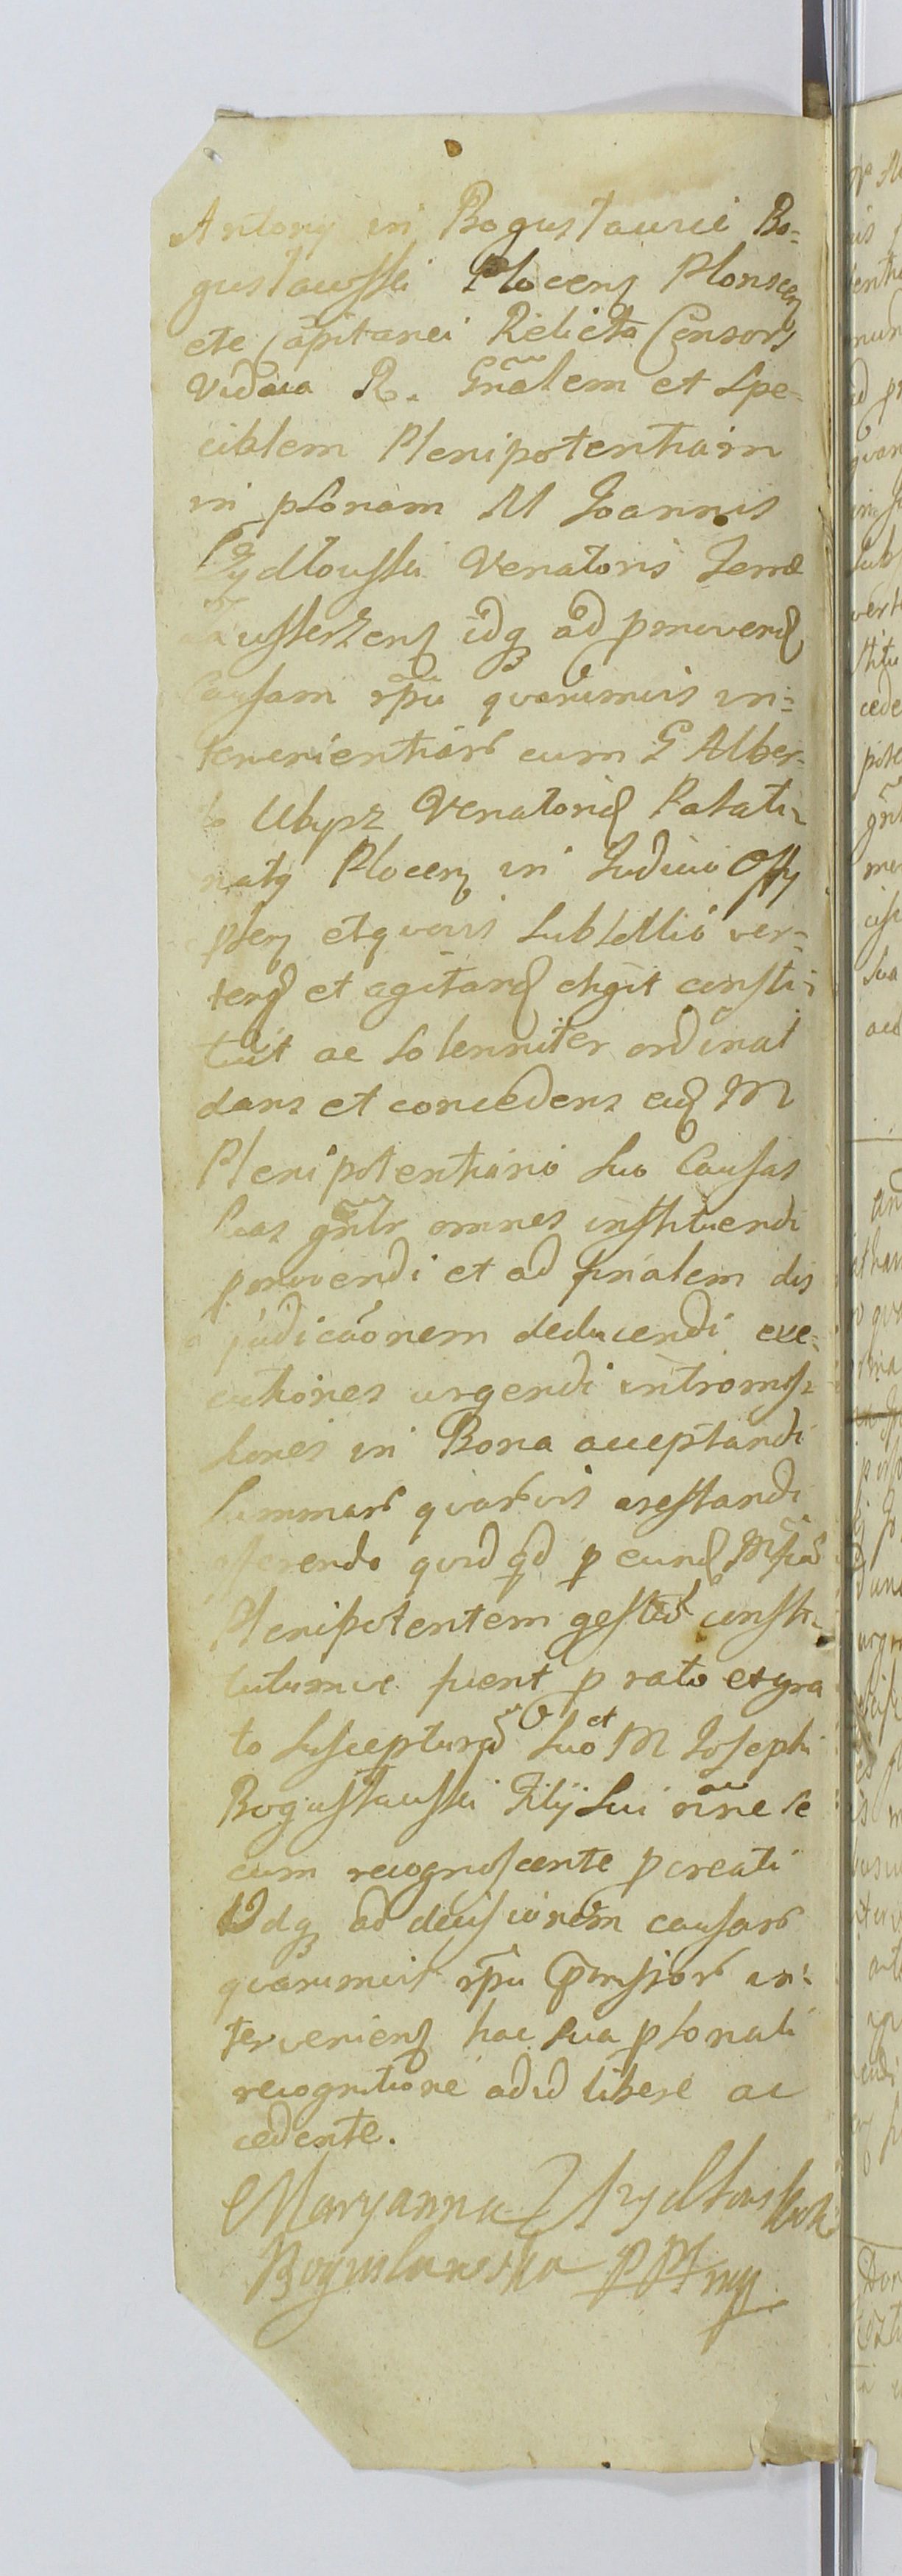 Antony in Bogusławice Bo=
gusławski Plocens Plonscens
etc Capitanei Relicta Consors
Vidua R. Gnãlem et Spe-
ciblem Plenipotentiam
in psonam M Joannis
Szydłowski Venatoris Terræ
idq ad pmovend
Causam rõe quarumvis in=
tervenientiarũ cum G Alber-
to Ubysz Venatorid Palati=
natq Plocens in Judicio Offy
et quovis Subsellio ver=
tend et agitand eligit consti=
tuit ac Solenniter ordinat
dans et concedens eid M
Plenipotentiario Suo Causas
Suas gñlr omnes instituendi
pmovendi et ad finalem dis
judicãonem deducendi exe=
cutiones urgendi intromis=
siones in Bona acceptandi
Summas quasvis arestandi
offerendo quidqd p eund Mfcũ
Plenipotentem gestũ consti-
tutumve fuerit p rato et gra
to Suscepturã Suo et M Josephi
Bogusławski Filÿ Sui rõne se
cum recognoscente pcreati
Idq ad decisionem causarũ
quarumvis rõe pmissorũ in=
terveniens hac Sua psonali
recognitione ad id libere ac
cedente.
Maryanna z Szydłowskich
Bogusławska PPł mp